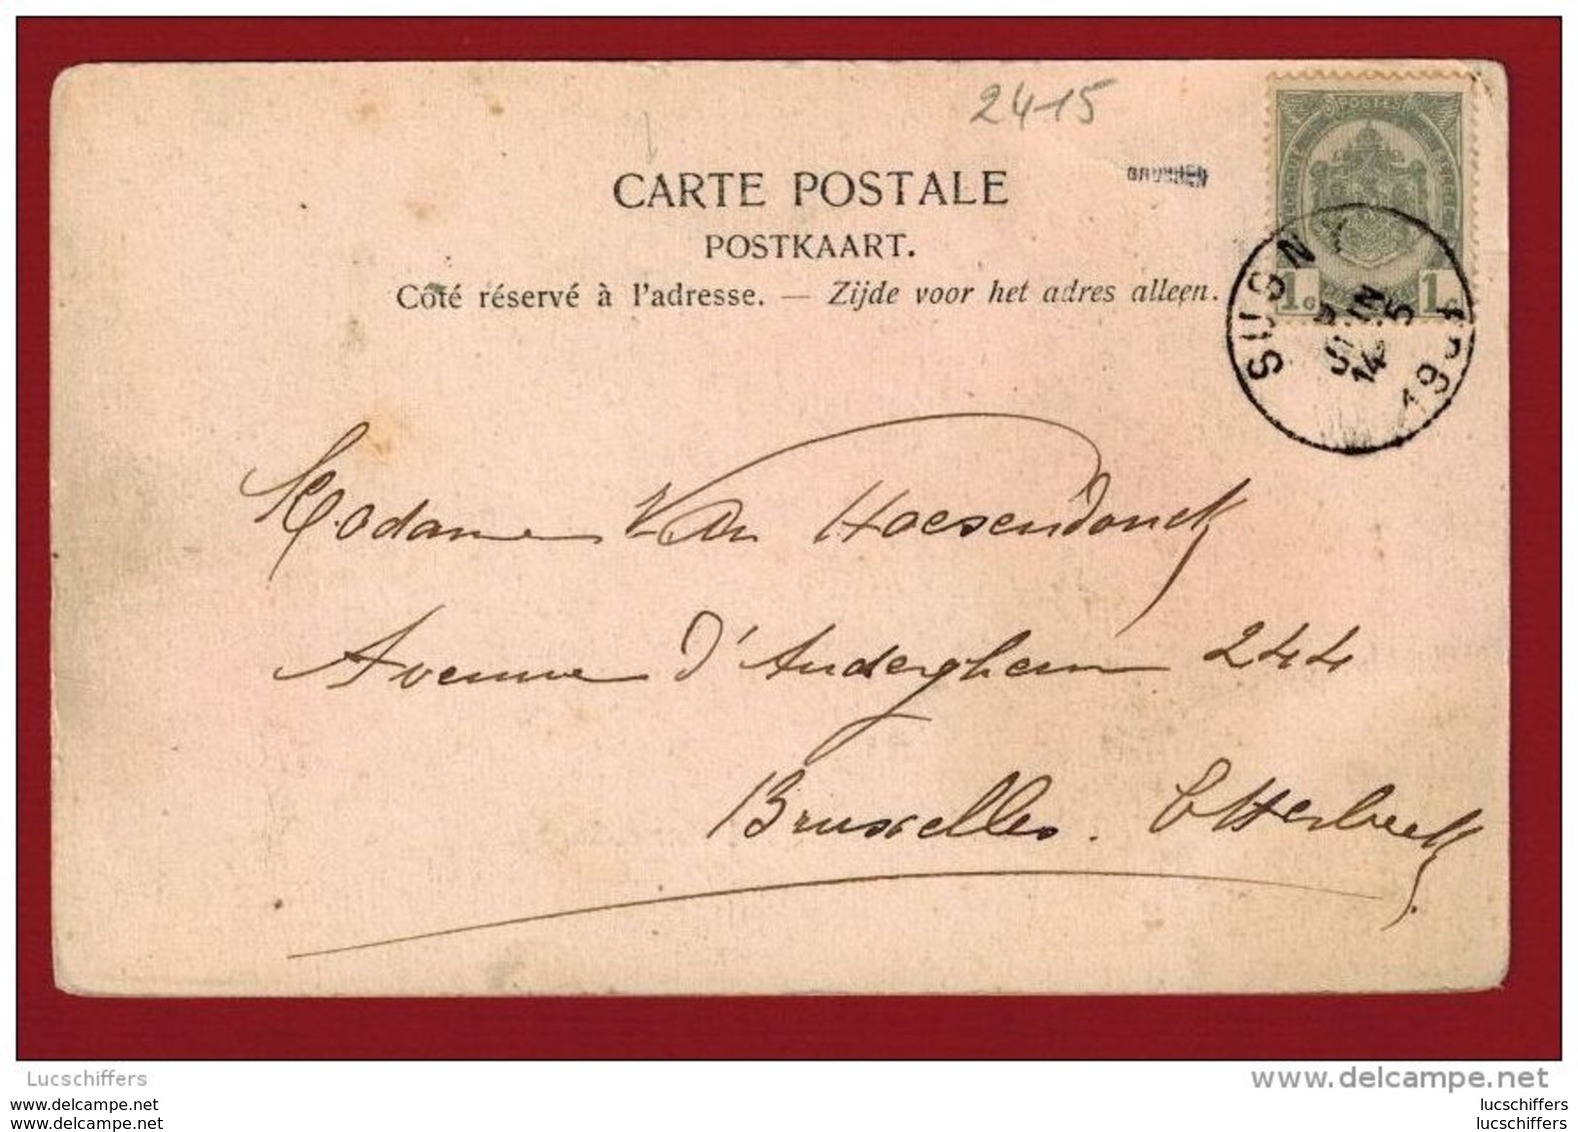 2415
CARTE POSTALE
POSTKAART.
Côté réservé à l'adresse. — Zijde voor het adres alleen.
POSTES
1 c 1 c
SUGNY
JUIN
14 5
Madame Van Hoesendonck
Avenue d'Auderghem 244
Bruxelles. Etterbeek
Lucschiffers
www.delcampe.net
www.delcampe.net
www.delcampe.net
lucschiffers
lucschiffers